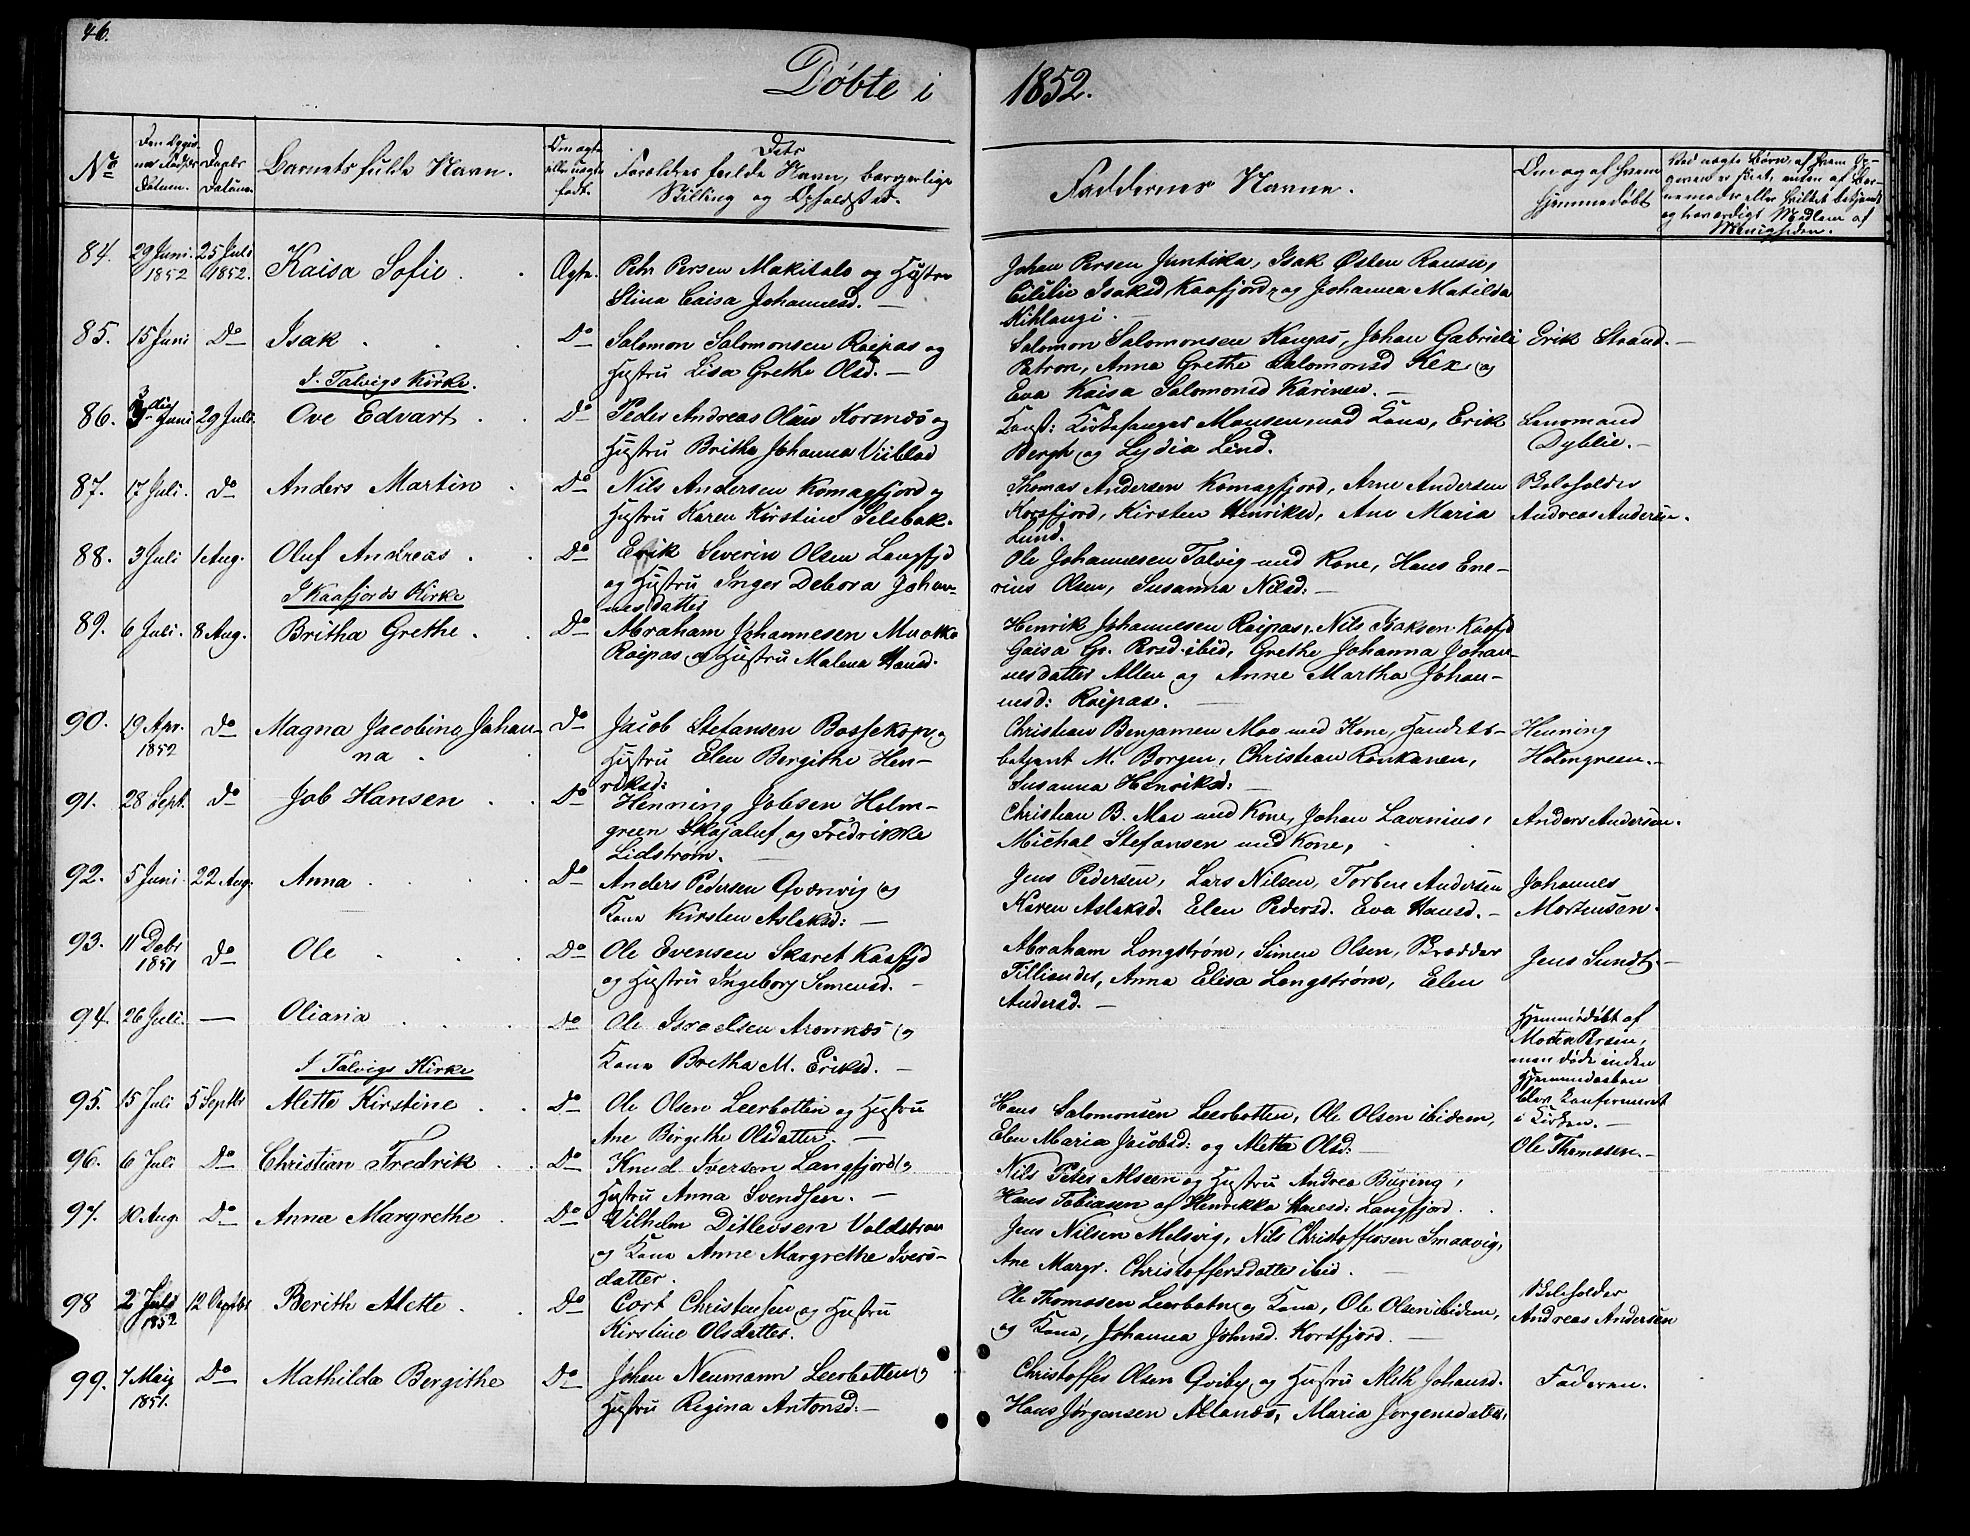 46.
Døbte i 1852.
No
Den Dygtiges Fødsels Datum.
Daabs Datum.
Barnets fulde Navn.
Om ægte eller uægte født.
Dets Forældres fulde Navn, borgerlige Stilling og Opholdsted.
Faddernes Navne.
Om og af hvem hjemmedøbt
Ved uægte Børn, af hvem Op-
givende er skeet, enten af Bar-
nemoder eller hvilket bekjendt
og troværdigt Medlem af
Menigheden.
84. 29 Juni 1852 25 Juli 1852. Kaisa Sofie Ægte. Petr Persen Makitalo og Hustru
Stina Caisa Johannesd.
Johan Persen Juntika, Isak Østen Rausu,
Cicilie Isaksd Kaafjord og Johanna Matilda
Kihlangi.
85. 15 Juni Do Isak Do Salomon Salomonsen Raipas og
Hustru Lisa Grethe Olsd.
Salomon Salomonsen Kangas, Johan Gabriel Erik Strand.
Patron, Anna Grethe Salomonsd Kex og
Eva Kaisa Salomonsd Karinen.
I Talvigs Kirke.
86. Juni 29 Juli. Ove Edvart Do Peder Andreas Olsen Korsnæs og
Hustru Britha Johanna Viiblad
Kirkesanger Monsen med Kone, Erik Lensmand
Bergh og Lydia Lind. Dyblie.
87. 17 Juli. Do Anders Martin Do Nils Andersen Komagfjord og
Hustru Karen Kirstine Pelebak.
Thomas Andersen Komagfjord, Arne Andersen Boleholder
Korsfjord, Kirsten Henriksd, Ane Maria Andreas Andersen.
Lund.
88. 3 Juli 1 Aug. Oluf Andreas Do Erik Severin Olsen Langfjd
og Hustru Inger Debora Johan-
nesdatter
Ole Johannesen Talvig med Kone, Hans Ene-
rius Olsen, Susanna Nilsd:
I Kaafjords Kirke
89. 6 Juli. 8 Aug. Britha Grethe Do Abraham Johannesen Muotka
Raipas og Hustru Malena Hansd.
Henrik Johannesen Raipas, Nils Isaksen Kaafjd
Gaisa Gr. Persd ibid, Grethe Johanna Johan-
nesdatter Alten og Anne Martha Johan-
nesd: Raipas.
90. 19 Apr. 1852 Do Magna Jacobina Johan-
na Do Jacob Stefansen Bossekop og
Hustru Elen Bergithe Hen-
riksd:
Christian Benjamen Moe med Kone, Handels- Henning
betjent M. Borgen, Christian Ronkanen, Holmgreen.
Susanna Henriksd:
91. 28 Sept. Do Job Hansen Do Henning Jobsen Holm-
green Skajaluf og Fredrikke
Lidstrøm.
Christian B. Moe med Kone, Johan Lavinius, Anders Andersen.
Michal Stefansen med Kone,
92. 5 Juni 22 Aug. Anna Do Anders Pedersen Qvænvig og
Kone Kirsten Aslaksd:
Jens Pedersen, Lars Nilsen, Torben Andersen Johannes
Karen Aslaksd. Elen Pedersd. Eva Hansd. Mortensen.
93. 11 Debr 1851 Do Ole Do Ole Evensen Skaret Kaafjd
og Hustru Ingeborg Simensd.
Abraham Longstrøm, Simen Olsen, Brædder Jens Sundt.
Filliander, Anna Elisa Longstrøm, Elen
Andersd.
94. 26 Juli. — Oliana Do Ole Israelsen Aronnæs og
Kone Bretha M. Eriksd.
Hjemmedøbt af
Morten Persen,
men døde inden
Hjemmedaaben
blev Konfermeret
i Kirken.
I Talvigs Kirke
95. 15 Juli 5 Septbr Alette Kirstine Do Ole Olsen Leerbotten og Hustru
Ane Birgithe Olsdatter.
Hans Salomonsen Leerbotten, Ole Olsen ibidem,
Elen Maria Jacobsd: og Aletta Olsd: Ole Thomesen.
96. 6 Juli Do Christian Fredrik Do Knud Iversen Langfjord og
Hustru Anna Svendsen.
Nils Peter Alseen og Hustru Andrea Buring,
Hans Tobiasen af Henrikka Hansd: Langfjord.
97. 10 Aug. Do Anna Margrethe Do Vilhelm Ditlevsen Voldstran
og Kone Anne Margrethe Ivers-
datter.
Jens Nilsen Melsvig, Nils Christoffersen Smaavig,
Ane Margr. Christoffersdatter ibid.
98 2 Juli 1852 12 Septbr Berith Alette Do Cort Christensen og Hustru
Kirstine Olsdatter.
Ole Thomesen Leerbotn og Kone, Ole Olsen ibidem, Boleholder
og Kone, Johanna Johnsd. Korsfjord. Andreas Andersen
99. 7 Maij 1851. Do Mathilda Bergithe Do Johan Neumann Leerbotten og
Hustru Regina Antonsd.
Christoffer Olsen Qviby og Hustru Meth Johansd. Faderen.
Hans Jørgensen Altanæs, Maria Jørgensdatter,